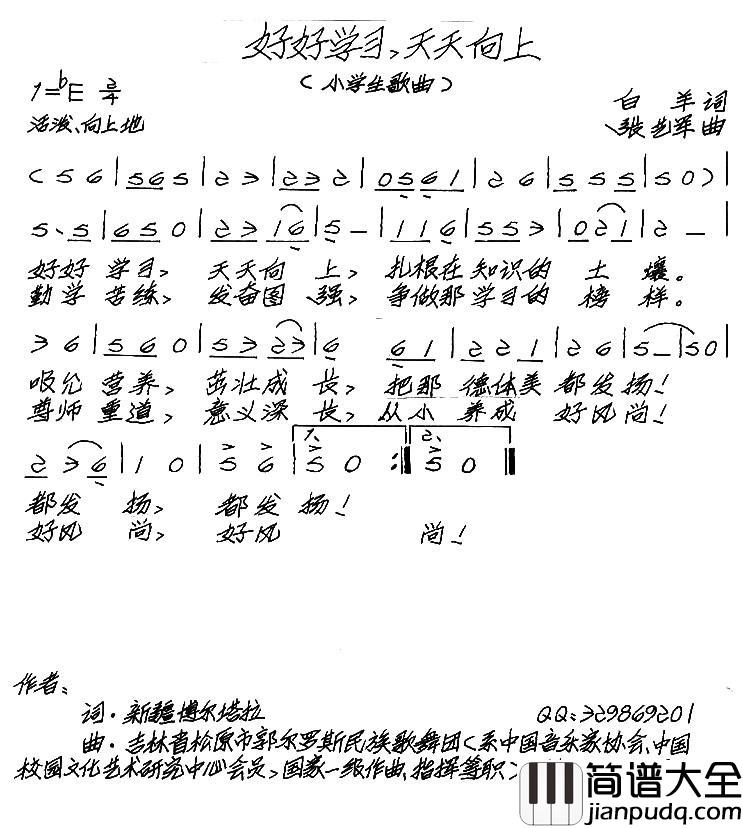 好好学习,天天向上
(小学生歌曲)
1=bE 2/4
白羊词
活泼、向上地
张艺军曲
(5 6 | 5 6 5 | 2 3 | 2 3 2 | 0 5 6 1 | 2 6 | 5 5 5 | 5 0) |
5、5 | 6 5 0 | 2 3 1 6 | 5 – | 1 1 6 | 5 5 3 | 0 2 1 | 2 – |
好好 学习, 天天向 上, 扎根在 知识的 土 壤。
勤学 苦练, 发奋图 强, 争做那 学习的 榜 样。
3 6 | 5 6 0 | 5 3 2 3 | 6 6 1 | 2 2 1 | 2 6 | 5 – | 5 0 |
吸允 营养, 茁壮成 长, 把那 德体美 都发 扬!
尊师 重道, 意义深 长, 从小 养成 好风 尚!
1、 2、
2 3 6 | 1 0 | 5 6 | 5 0 :| 5 0 ‖
都发 扬, 都发 扬!
好风 尚, 好风 尚!
作者:
词·新疆博尔塔拉 QQ:329869201
曲·吉林省松原市郭尔罗斯民族歌舞团(系中国音乐家协会、中国
校园文化艺术研究中心会员,国家一级作曲、指挥兼职)
简谱大全
jianpudq.com